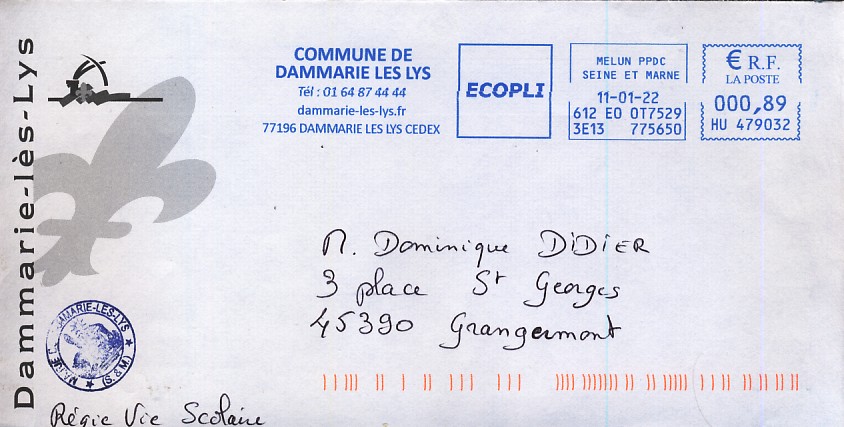 Dammarie-lès-Lys
COMMUNE DE
DAMMARIE LES LYS
Tél : 01 64 87 44 44
dammarie-les-lys.fr
77196 DAMMARIE LES LYS CEDEX
ECOPLI
MELUN PPDC
SEINE ET MARNE
11-01-22
612 E0 0T7529
3E13 775650
€ R.F.
LA POSTE
000,89
HU 479032
M. Dominique DIDIER
3 place St Georges
45390 Grangermont
MAIRIE DAMMARIE-LES-LYS ★ (M.&S.) ★
Régie Vie Scolaire